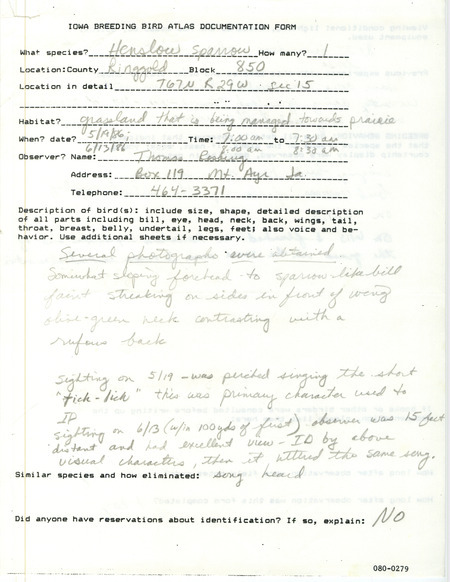 IOWA BREEDING BIRD ATLAS DOCUMENTATION FORM
What species? Henslow Sparrow How many? 1
Location:County Ringgold Block 850
Location in detail T67N R29W sec 15
Habitat? grassland that is being managed towards prairie
When? date? 5/19/86; Time: 7:00 am to 7:30 am
6/13/86 8:00 am 8:30 am
Observer? Name: Thomas
Address: Box 119 Mt. Ayr Ia.
Telephone: 464-3371
Description of bird(s): include size, shape, detailed description
of all parts including bill, eye, head, neck, back, wings, tail,
throat, breast, belly, undertail, legs, feet; also voice and be-
havior. Use additional sheets if necessary.
Several photographs were obtained.
Somewhat sloping forehead to sparrow-like bill
faint streaking on sides in front of wing
olive-green neck contrasting with a
rufous back
Sighting on 5/19 - was perched singing the short
"tick-lick" this was primary character used to
ID
Sighting on 6/13 (w/in 100 yds of first) observer was 15 feet
distant and had excellent view - ID by above
visual characters, then it uttered the same song.
Similar species and how eliminated: song heard
Did anyone have reservations about identification? If so, explain: NO
080-0279